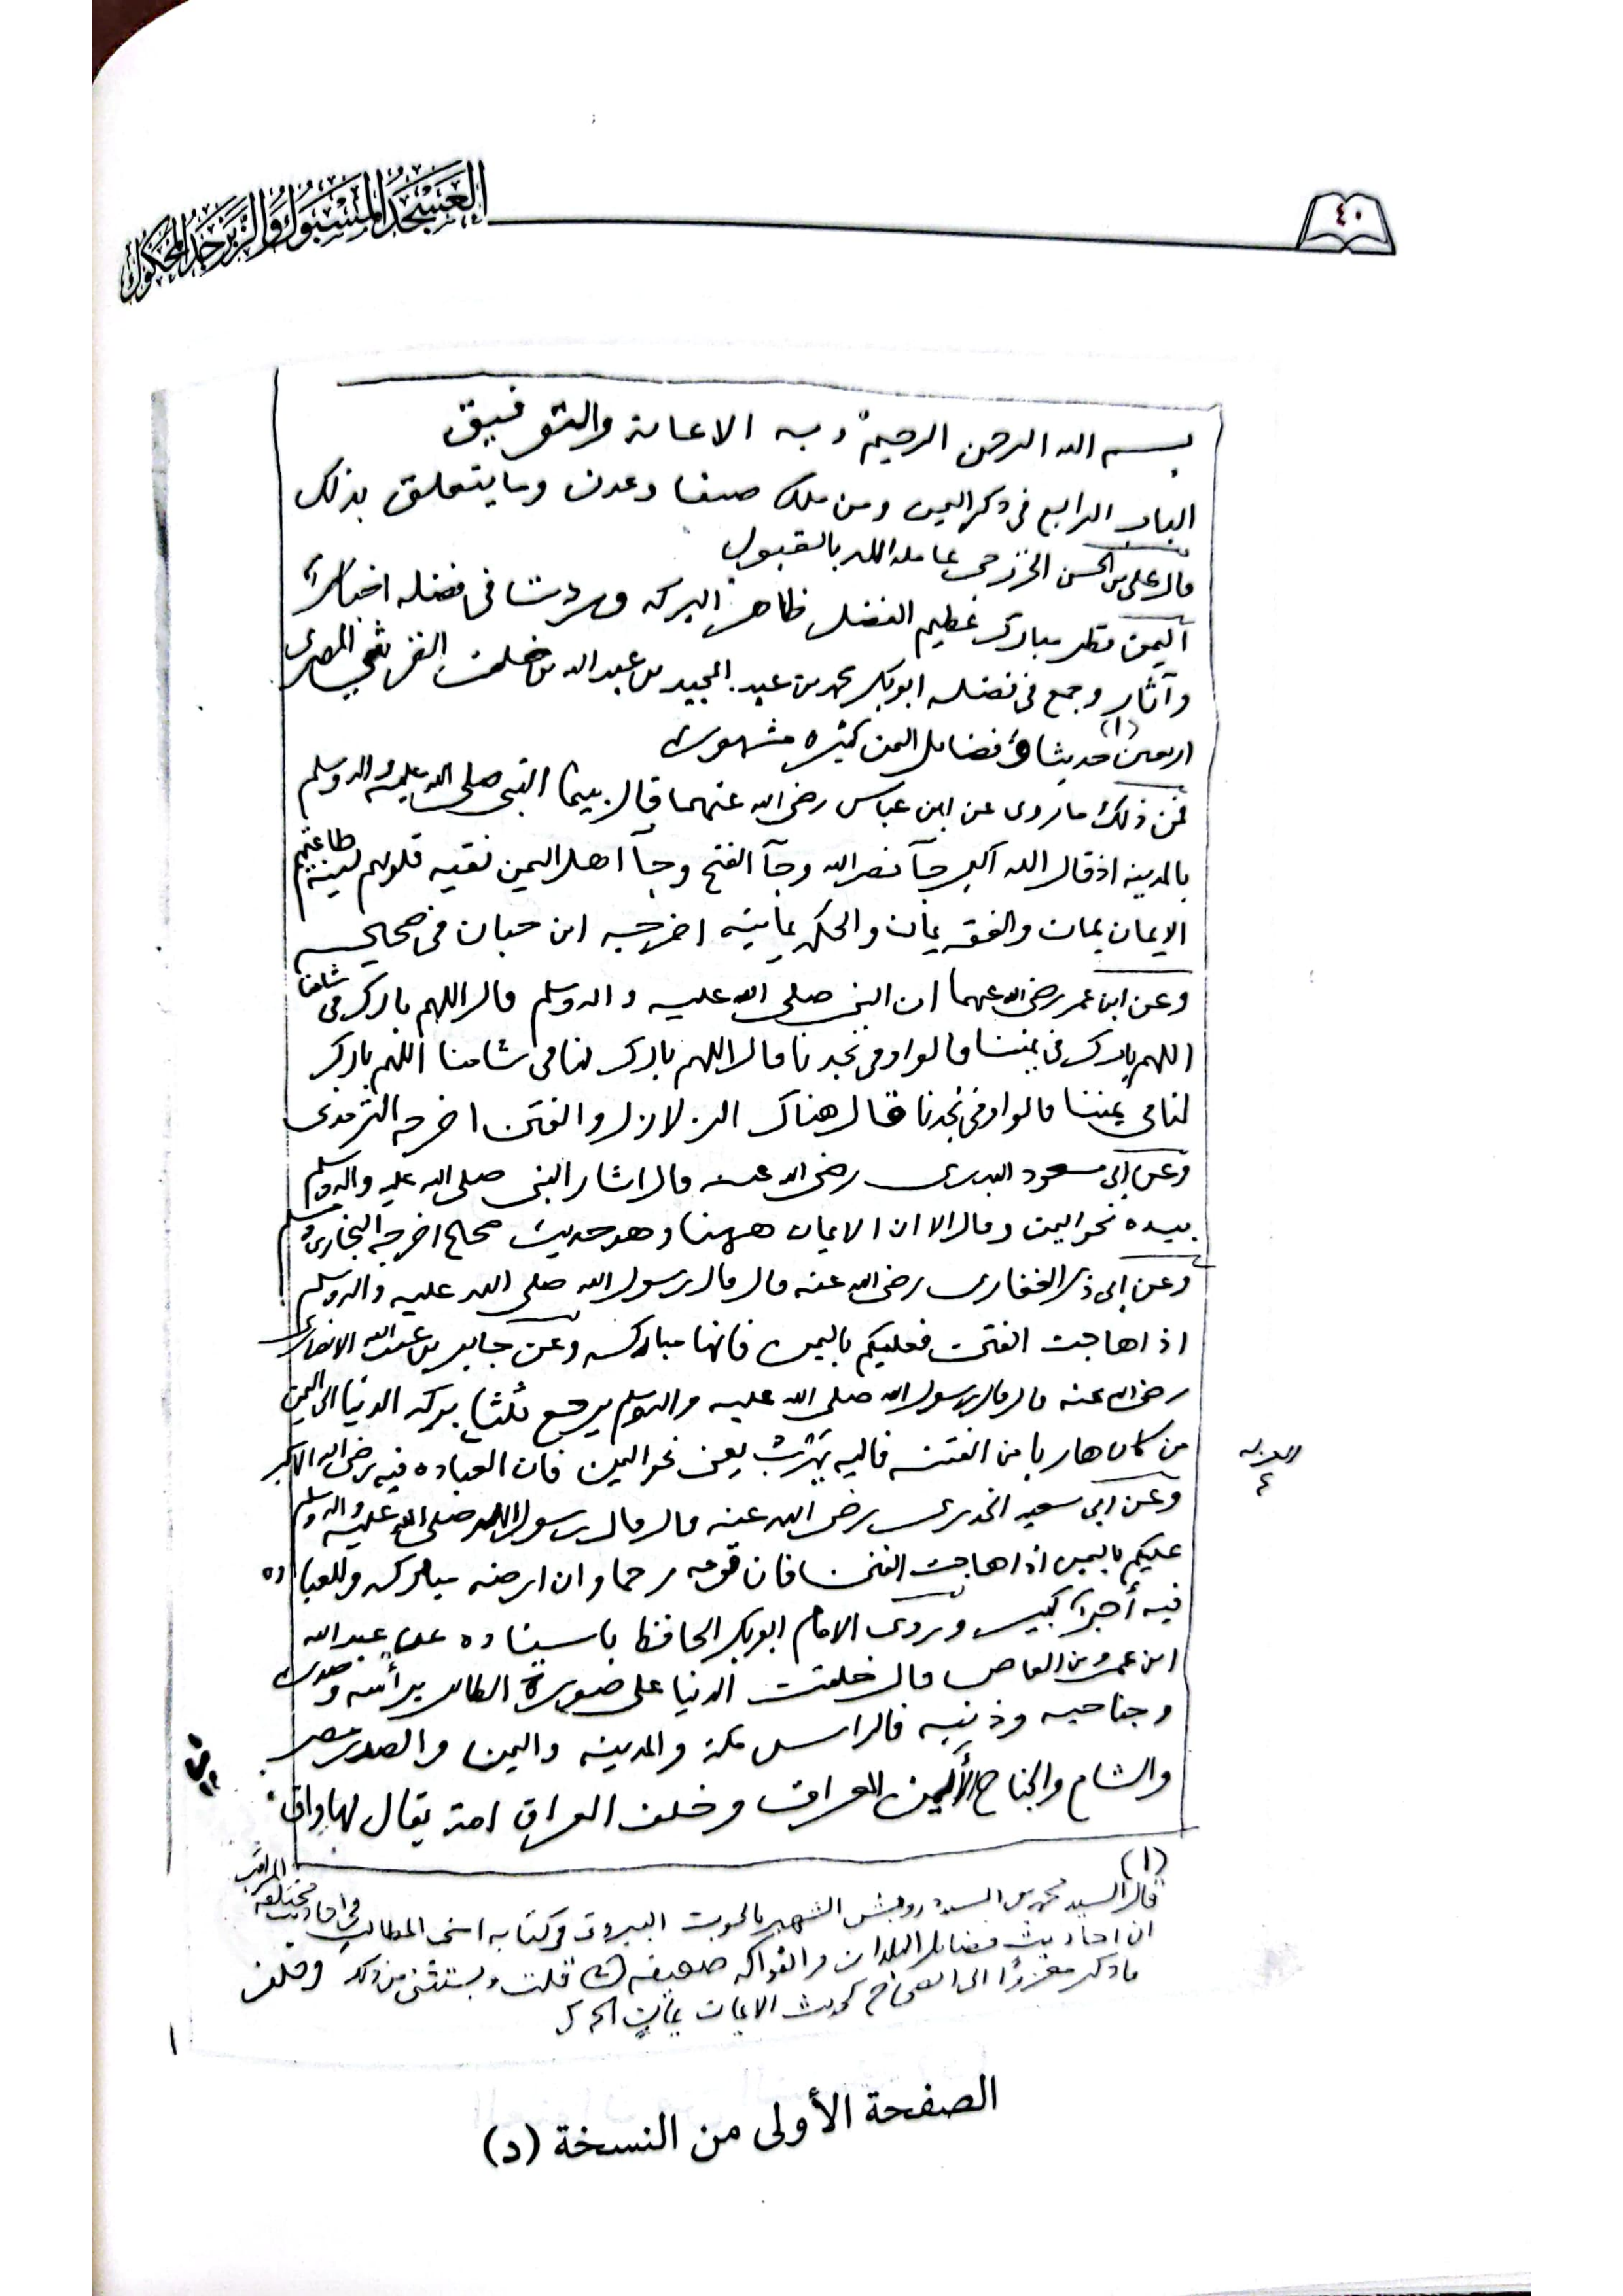 ٤٠
العسجد المسبوك والزبرجد المحكوك
بسم الله الرحمن الرحيم وبه الاعانة والتوفيق
الباب الرابع في ذكر اليمن ومن ملك صنعا وعدن وما يتعلق بذلك
قال على بن الحسن الخزرجي عامله الله بالقبول
اليمن قطر مبارك عظيم الفضل ظاهر البركه وردت في فضله اخبار
وآثار وجمع في فضله ابوبكر محمد بن عبد المجيد بن عبد الله بن خلف المصرى
اربعين (١) حديثا وفضايل اليمن كثيره مشهوره
فمن ذلك ما روى عن ابن عباس رضى الله عنهما قال بينما النبى صلى الله عليه واله وسلم
بالمدينه اذ قال الله اكبر جآ نصر الله وجآ الفتح وجآ اهل اليمن نقيه قلوبهم لينه طاعتهم
الايمان يمان والفقه يمان والحكمه يمانيه اخرجه ابن حبان فى صحيحه
وعن ابن عمر رضى الله عنهما ان النبى صلى الله عليه واله وسلم قال اللهم بارك فى شامنا
اللهم بارك فى يمننا قالوا وفى نجدنا قال اللهم بارك لنا فى شامنا اللهم بارك
لنا فى يمننا قالوا وفى نجدنا قال هناك الزلازل والفتن اخرجه الترمذى
وعن ابى مسعود البدرى رضى الله عنه قال اشار النبى صلى الله عليه واله وسلم
بيده نحو اليمن وقال الا ان الايمان ههنا وهو حديث صحاح اخرجه البخارى ومسلم
وعن ابى ذر الغفارى رضى الله عنه قال قال رسول الله صلى الله عليه واله وسلم
اذا هاجت الفتن فعليكم باليمن فانها مباركه وعن جابر بن عبد الله الانصارى
رضى الله عنه قال قال رسول الله صلى الله عليه واله وسلم يرجع ثلثا بركه الدنيا الى اليمن
من كان هاربا من الفتنه فاليه يهرب يعنى نحو اليمن فان العباده فيه رضى الله الاكبر
وعن ابى سعيد الخدرى رضى الله عنه قال قال رسول الله صلى الله عليه واله وسلم
عليكم باليمن اذا هاجت الفتن فان قومه رحما وان ارضه مباركه وللعباده
فيه أجرا كبير وروى الامام ابوبكر الحافظ باسناده عن عبد الله
ابن عمرو بن العاص قال خلقت الدنيا على صورة الطاير برأسه وصدره
وجناحيه وذنبه فالراس مكة والمدينه واليمن والصدر مصر
والشام والجناح الأيمن العراق وخلف العراق امة يقال لها واق
(١)
قال السيد محمد بن السيد درويش الشهير بالحوت البيروتى فى كتابه اسنى المطالب فى احاديث مختلفة المراتب
ان احاديث فضايل البلدان والفواكه ضعيفه قلت ويستثنى من ذلك
ما ذكر معزوًا الى الصحاح كحديث الايمان يمان
وخلف
الصفحة الأولى من النسخة (د)